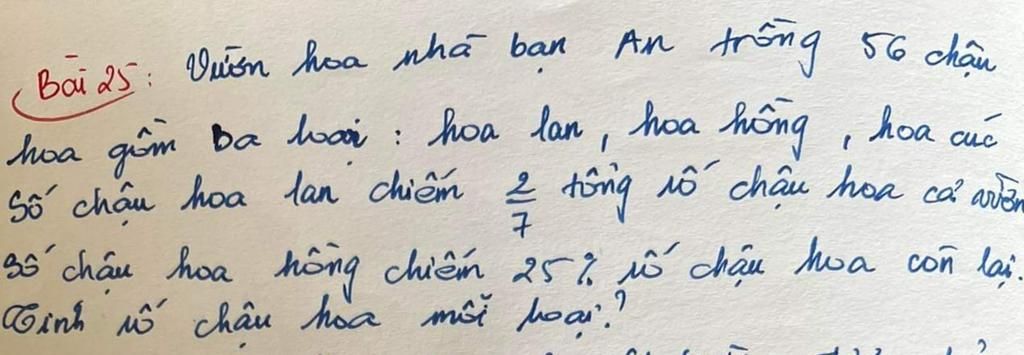 Bài 25: Vườn hoa nhà bạn An trồng 56 chậu
hoa gồm ba loại : hoa lan, hoa hồng, hoa cúc
Số chậu hoa lan chiếm 2/7 tổng số chậu hoa cả vườn
Số chậu hoa hồng chiếm 25% số chậu hoa còn lại.
Tính số chậu hoa mỗi loại?